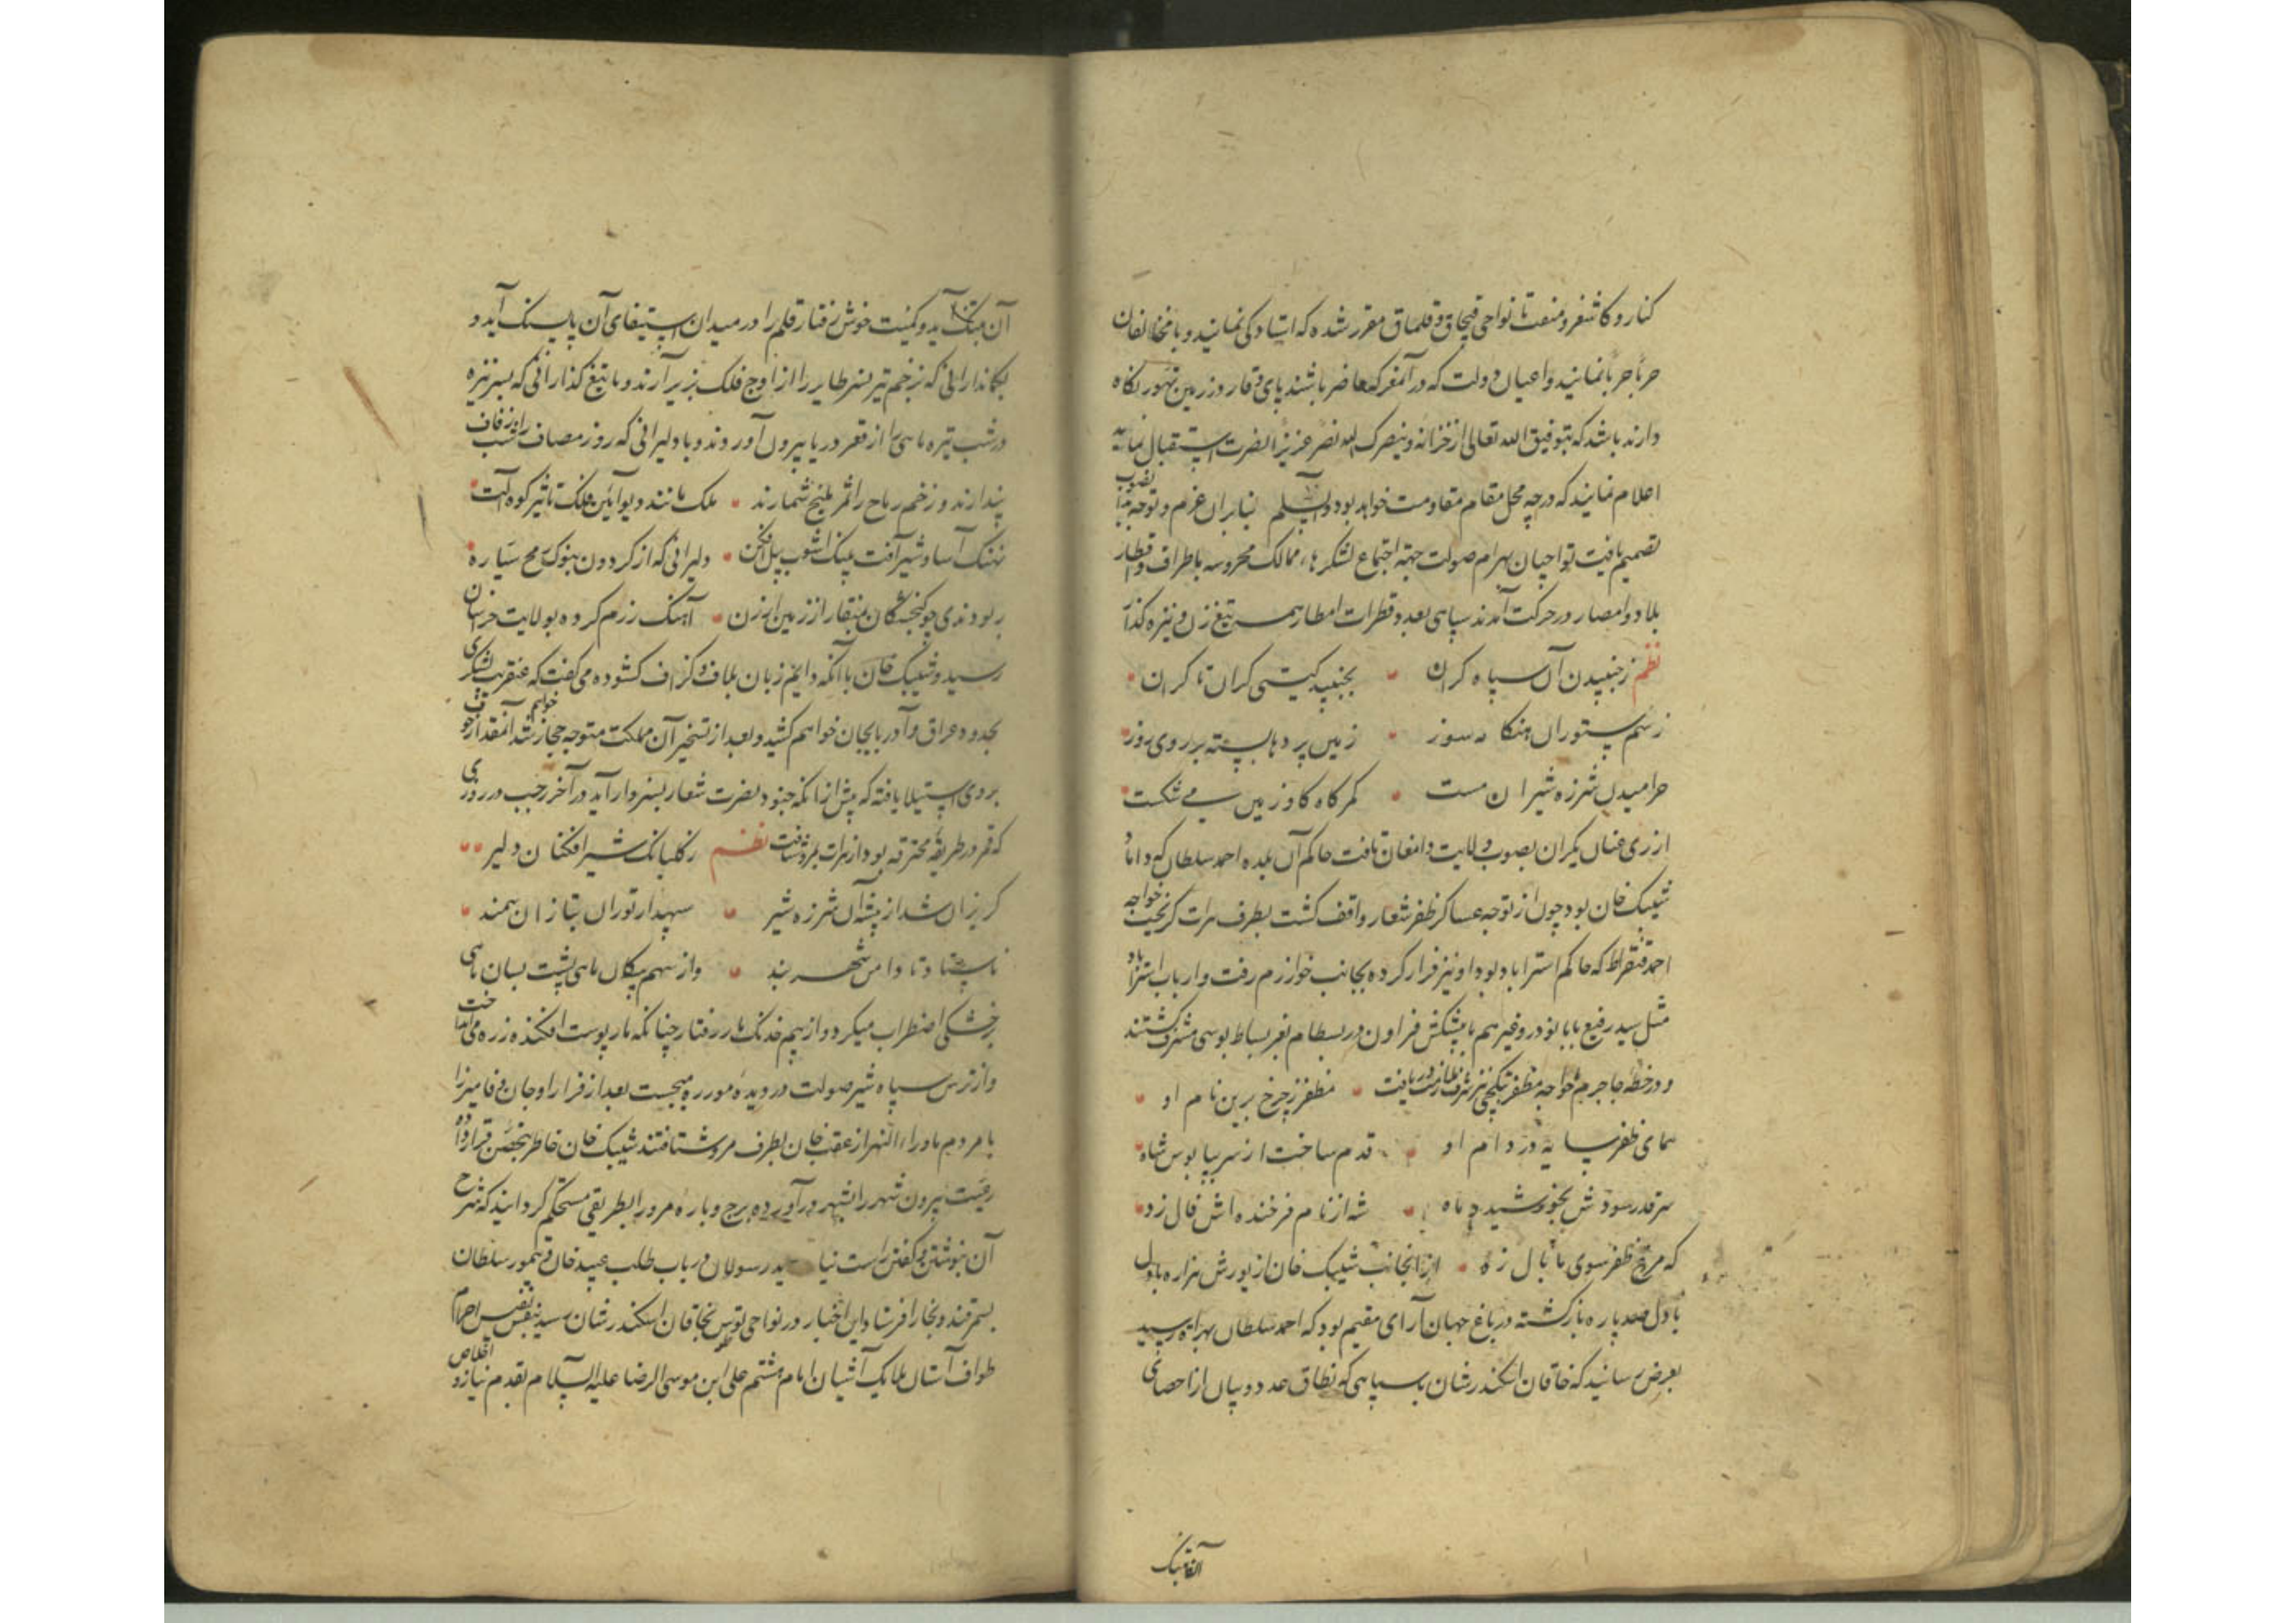 کنار و کاشغر و منعت تا نواحی قبچاق و قلماق مقرر شده که ایستادکی نمایند و با مخالفان
حربا حربا نمایند و اعیان دولت که در آن معرکه حاضر باشند پای وقار در زمین تهور نکاه
دارند باشد که بتوفیق الله تعالی از خزانه و ینصرک الله نصرا عزیزا نصرت استقبال نماید
اعلام نمایند که در چه محل مقام مقاومت خواهد بود والسلم بنابران عزم و توجه بصوب
تصمیم یافت تواجیان بهرام صولت جهة اجتماع لشکرهاء ممالک محروسه باطراف و اقطار
بلاد و امصار در حرکت آمدند سپاهی بعدد قطرات امطار همه تیغ زن و نیزه کذار
نظم ز جنبیدن آن سپاه کران بجنبید کیتی کران تا کران
ز سم ستوران هنکامه سوز زمین پردها بسته بر روی روز
خرامیدن شرزه شیران مست کمرکاه کاو زمین می شکست
از ری عنان یکران بصوب ولایت دامغان تافت حاکم آن بلده احمد سلطان که داماد
شیبک خان بود چون از توجه عساکر ظفر شعار واقف کشت بطرف هرات کریخت خواجه
احمد قنقراط که حاکم استراباد بود او نیز فرار کرده بجانب خوارزم رفت و ارباب استراباد
مثل سید رفیع بابا نودر و غیرهم با پیشکش فراوان در بسطام بعز بساط بوسی مشرف کشتند
و در خطه جاجرم خواجه مظفر بتکچی نیز شرف ملازمت دریافت مظفر ز چرخ برین نام او
همای ظفر سایه در دام او قدم ساخت از سر بپا بوس شاه
سر قدر سودش بخورشید و ماه شه از نام فرخنده اش فال زد
که مرغ ظفر سوی ما بال زد از انجانب شیبک خان از یورش هزاره با دلی
با دل صد پاره بازکشته در باغ جهان آرای مقیم بود که احمد سلطان بهراة رسید
بعرض رسانید که خاقان اسکندر شان با سپاهی که نطاق عدد و بیان از احصای
آن بتنک آید و کمیت خوش رفتار قلم را در میدان استیفای آن پا بسنک آید و
بکماندارانی که بزخم تیر نسر طایر را از اوج فلک بزیر آرند و با تیغ گذارانی که بسر نیزه
در شب تیره ماهی را از قعر دریا بیرون آوردند و با دلیرانی که روز مصاف را شب زفاف
پندارند و زخم رماح را ثمر بلیخ شمارند ملک مانند دیو آیین فلک تاثیر کوه آلت
نهنک آسا و شیر آفت پلنک آشوب پیل افکن دلیرانی که از کردون بنوک رمح سیاره
ربودندی چو کنجشکان بمنقار از زمین ارزن آهنک رزم کرده بولایت خراسان
رسید و شیبک خان با آنکه دایم زبان بلاف و کزاف کشوده می کفت که عنقریب لشکری
بحدود عراق و آذربایجان خواهم کشید و بعد از تسخیر آن مملکت متوجه حجاز خواهم شد آنمقدار خوف
بر وی استیلا یافته که پیش از انکه جنود نصرت شعار بسبزوار آید در آخر رجب در روزی
که قمر در طریقه محترقه بود از هرات بمرو شتافت نظم ز کلبانک شیر افکنان دلیر
کریزان شد از پیشه آن شرزه شیر سپهدار توران بتازان سمند
نه استاد تا دامن شهر بند و از سهم پیکان ماهی پشت بسان ماهی
بر خشکی اضطراب میکرد و از بیم خدنک مار رفتار چنانکه مار پوست افکند زره می انداخت
و از ترس سپاه شیر صولت در دیده مور ره میجست بعد از فرار او جان وفا میرزا
با مردم ماوراء النهر از عقب خان بطرف مرو شتافتند شیبک خان خاطر بتحصن قرار داده
رعیت بیرون شهر را بشهر درآورده برج و باره مرو را بطریقی مستحکم کردانید که شرح
آن بنوشتن و کفتن راست نیاید رسولان در باب طلب عبید خان و تیمور سلطان
بسمرقند و بخارا فرستاد این اخبار در نواحی توس بخاقان اسکندر شان رسید بنفس نفیس احرام
طواف آستان ملایک آشیان امام هشتم علی ابن موسی الرضا علیه السلام بقدم نیاز و اخلاص
الغابیک